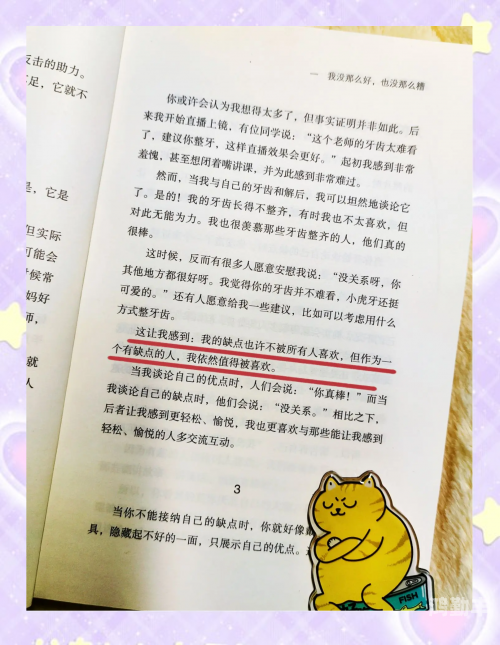 反击的助力。
足，它就不
是，它是
但实际
可能会
时候常
妈好
师，
就
人
一 我没那么好，也没那么糟
你或许会认为我想得太多了，但事实证明并非如此。后
来我开始直播上镜，有位同学说：“这个老师的牙齿太难看
了，建议你整牙，这样直播效果会更好。”起初我感到非常
羞愧，甚至想闭着嘴讲课，并为此感到非常难过。
然而，当我与自己的牙齿和解后，我可以坦然地谈论它
了。是的！我的牙齿长得不整齐，有时我也不太喜欢，但
对此无能为力。我也很羡慕那些牙齿整齐的人，他们真的
很棒。
这时候，反而有很多人愿意安慰我说：“没关系呀，你
其他地方都很好呀。我觉得你的牙齿并不难看，小虎牙还挺
可爱的。”还有人愿意给我一些建议，比如可以考虑用什么
方式整牙齿。
这让我感到：我的缺点也许不被所有人喜欢，但作为一
个有缺点的人，我依然值得被喜欢。
当我谈论自己的优点时，人们会说：“你真棒！”而当
我谈论自己的缺点时，他们会说：“没关系。”相比之下，
后者让我感到更轻松、愉悦，我也更喜欢与那些能让我感到
轻松、愉悦的人多交流互动。
3
当你不能接纳自己的缺点时，你就好像
具，隐藏起不好的一面，只展示自己的优点。
FISH